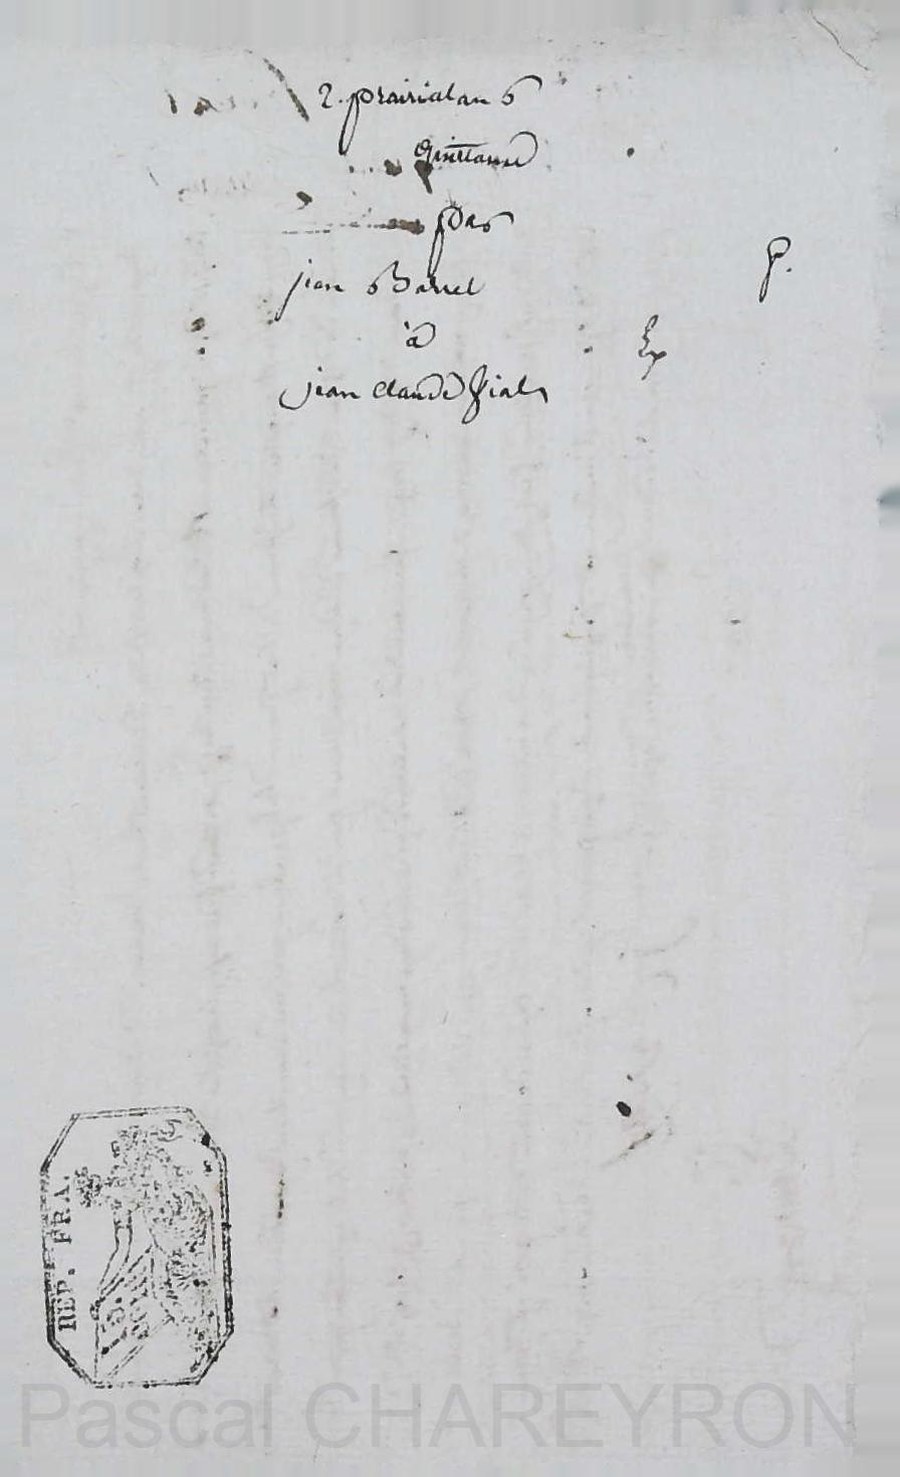 2. prairial an 6
quittance
par
jean Barrel
à
jean claude fialn
P.
Ex
REP. FRA.
Pascal CHAREYRON